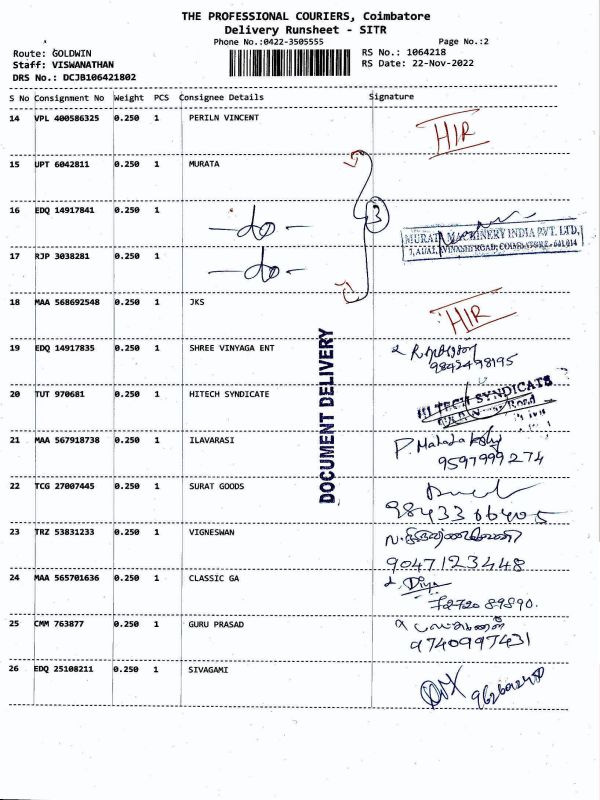 THE PROFESSIONAL COURIERS, Coimbatore
Delivery Runsheet - SITR
Phone No.:0422-3505555 Page No.:2
Route: GOLDWIN RS No.: 1064218
Staff: VISWANATHAN RS Date: 22-Nov-2022
DRS No.: DCJB106421802
S No Consignment No Weight PCS Consignee Details Signature
14 VPL 400586325 0.250 1 PERILN VINCENT HIR
15 UPT 6042811 0.250 1 MURATA
16 EDQ 14917841 0.250 1 -do- 3
MURATA MACHINERY INDIA PVT. LTD,
AVINASHI ROAD, COIMBATORE - 641 014
17 RJP 3038281 0.250 1 -do-
18 MAA 568692548 0.250 1 JKS HIR
19 EDQ 14917835 0.250 1 SHREE VINYAGA ENT
9842498195
20 TUT 970681 0.250 1 HITECH SYNDICATE HITECH SYNDICATE
Road
21 MAA 567918738 0.250 1 ILAVARASI P.
9597999274
22 TCG 27007445 0.250 1 SURAT GOODS
9843366405
23 TRZ 53831233 0.250 1 VIGNESWAN
9047123448
24 MAA 565701636 0.250 1 CLASSIC GA Diya
72720 89890.
25 CMM 763877 0.250 1 GURU PRASAD
9740997431
26 EDQ 25108211 0.250 1 SIVAGAMI
DOCUMENT DELIVERY